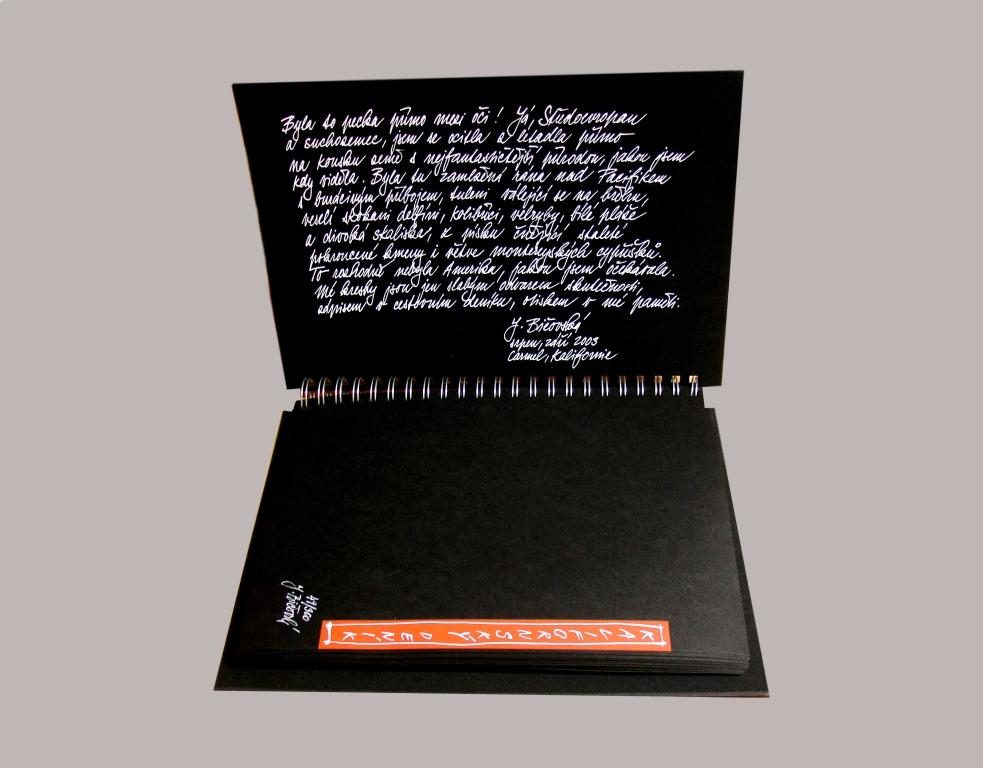 Byla to pecka přímo mezi oči! Já, Středoevropan
a suchozemec, jsem se ocitla z letadla přímo
na kousku země s nejfantastičtější přírodou, jakou jsem
kdy viděla. Byla tu zamlžená rána nad Pacifikem
s burácivým příbojem, tuleni válející se na břehu,
veselí skokani delfíni, kolibříci, velryby, bílé pláže
a divoká skaliska, z písku čnějící staleté
pokroucené kmeny i větve montereyských cypřišků.
To rozhodně nebyla Amerika, jakou jsem očekávala.
Mé kresby jsou jen slabým odvarem skutečnosti,
zápisem v cestovním deníku, otiskem v mé paměti.
J. Bičovská
srpen, září 2003
Carmel, Kalifornie
47/500
J. Bičovská
KALIFORNSKÝ DENÍK